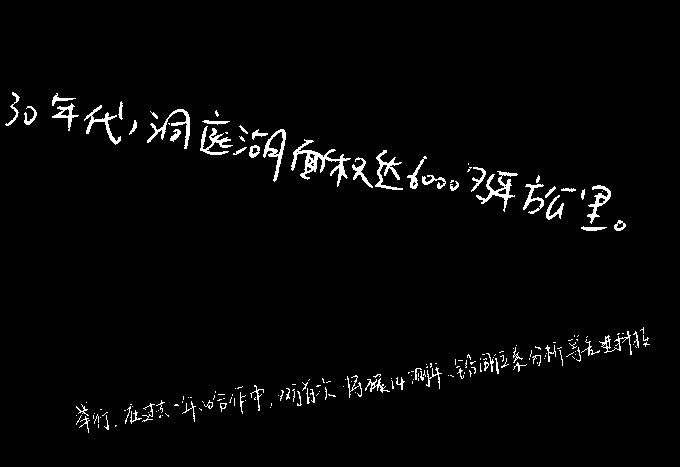 30年代,洞庭湖面积达6000多平方公里。
举行.在过去一年的合作中,双方首次将碳14测年、铅同位素分析等先进科技